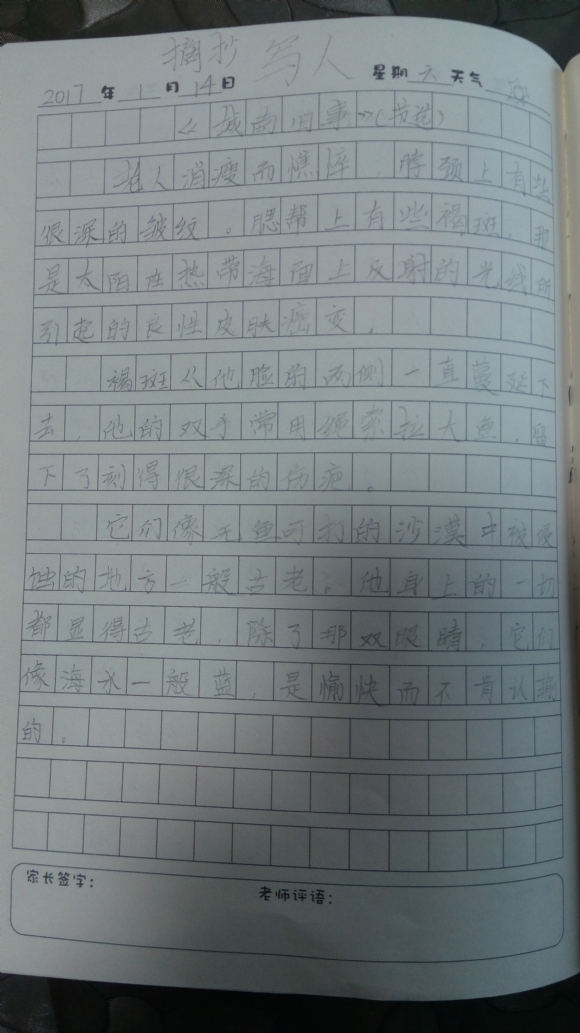 摘抄 写人
2017年1月14日 星期六天气
《城南旧事》(节选)
老人消瘦而憔悴，脖颈上有些
很深的皱纹。腮帮上有些褐斑，那
是太阳在热带海面上反射的光线所
引起的良性皮肤癌变。
褐斑从他脸的两侧一直蔓延下
去，他的双手常用绳索拉大鱼，留
下了刻得很深的伤疤。
它们像无鱼可打的沙漠中被侵
蚀的地方一般古老。他身上的一切
都显得古老，除了那双眼睛，它们
像海水一般蓝，是愉快而不肯认输
的。
家长签字：
老师评语：